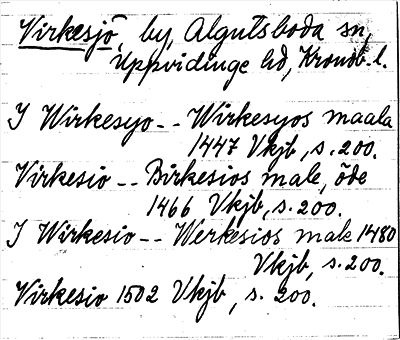 Virkesjö, by, Algutsboda sn,
Uppvidinge hd, Kronob. l.
I Wirkesyo -- Wirkesyos maala
1447 Vkjb, s. 200.
Virkesio -- Birkesios male, öde
1466 Vkjb, s. 200.
I Wirkesio -- Werkesios male 1480
Vkjb, s. 200.
Virkesio 1502 Vkjb, s. 200.